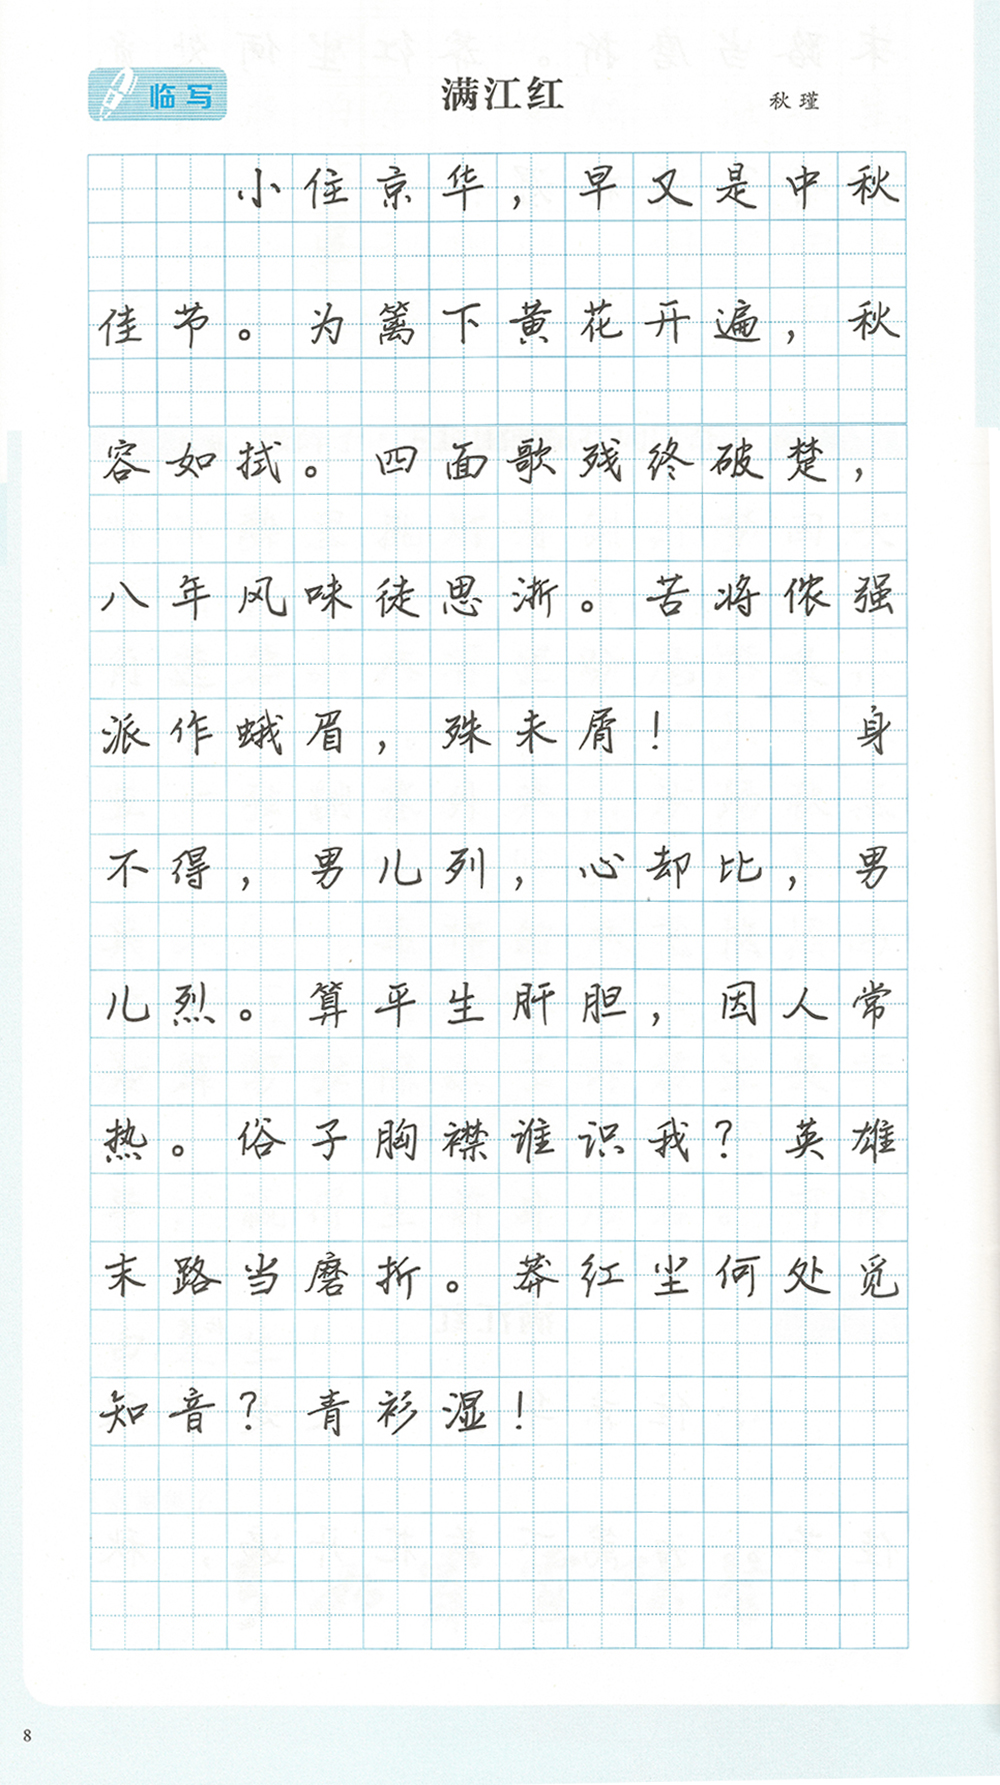 临写
满江红
秋瑾
小住京华，早又是中秋
佳节。为篱下黄花开遍，秋
容如拭。四面歌残终破楚，
八年风味徒思浙。苦将侬强
派作蛾眉，殊未屑！　　身
不得，男儿列，心却比，男
儿烈。算平生肝胆，因人常
热。俗子胸襟谁识我？英雄
末路当磨折。莽红尘何处觅
知音？青衫湿！
8